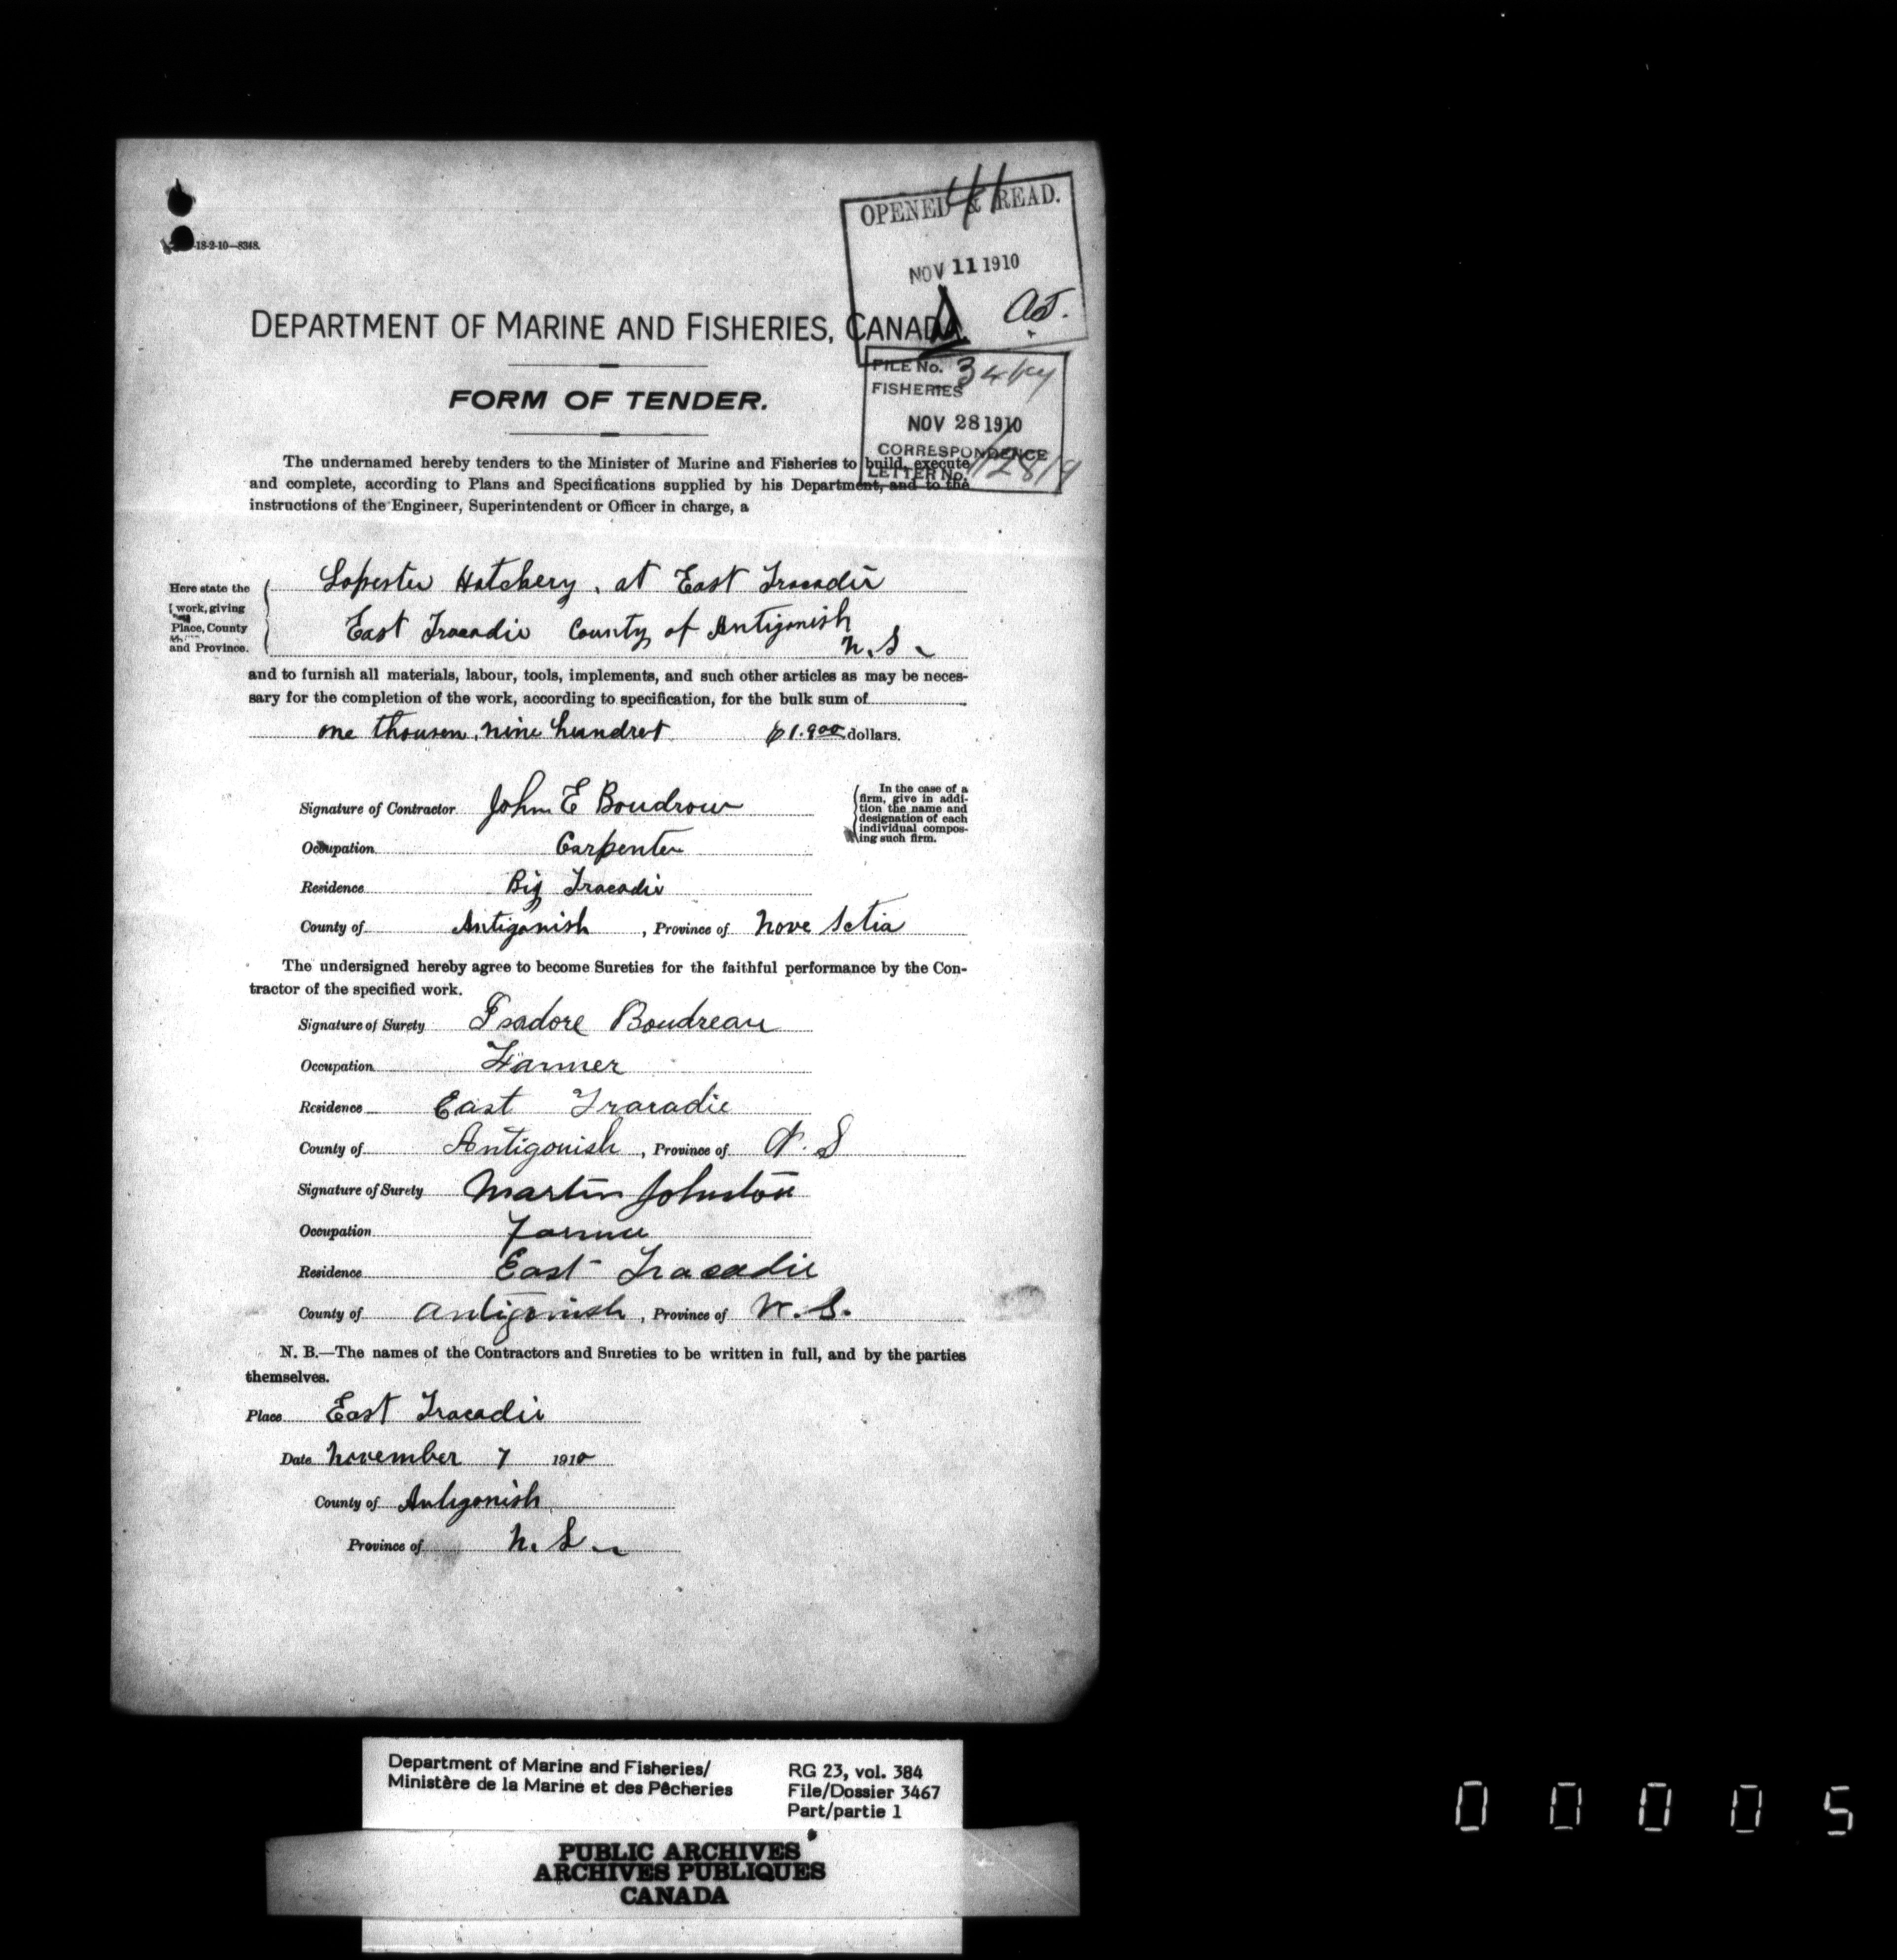 -18-2-10—8348.
41
OPENED & READ.
NOV 11 1910
DEPARTMENT OF MARINE AND FISHERIES, CANADA.
FILE No. 3467
FISHERIES
FORM OF TENDER.
NOV 28 1910
CORRESPONDENCE
LETTER No.
The undernamed hereby tenders to the Minister of Marine and Fisheries to build, execute
and complete, according to Plans and Specifications supplied by his Department, and to the
instructions of the Engineer, Superintendent or Officer in charge, a
Here state the
work, giving
Place, County
and Province.
Lopester Hatchery, at East Tracadie
East Tracadie County of Antigonish
N.S
and to furnish all materials, labour, tools, implements, and such other articles as may be neces-
sary for the completion of the work, according to specification, for the bulk sum of
one thousen, nine hundret $1.900 dollars.
Signature of Contractor John E Boudrow
In the case of a
firm, give in addi-
tion the name and
designation of each
individual compos-
ing such firm.
Occupation Carpenter
Residence Big Tracadie
County of Antigonish, Province of Nove Sctia
The undersigned hereby agree to become Sureties for the faithful performance by the Con-
tractor of the specified work.
Signature of Surety Isadore Boudreau
Occupation Farmer
Residence East Tracadie
County of Antigonish, Province of N. S
Signature of Surety Martin Johnston
Occupation Farmer
Residence East Tracadie
County of Antigonish, Province of N. S.
N. B.—The names of the Contractors and Sureties to be written in full, and by the parties
themselves.
Place East Tracadie
Date November 7 1910
County of Antigonish
Province of N. S
Department of Marine and Fisheries/
Ministère de la Marine et des Pêcheries
RG 23, vol. 384
File/Dossier 3467
Part/partie 1
PUBLIC ARCHIVES
ARCHIVES PUBLIQUES
CANADA
0 0 0 0 5